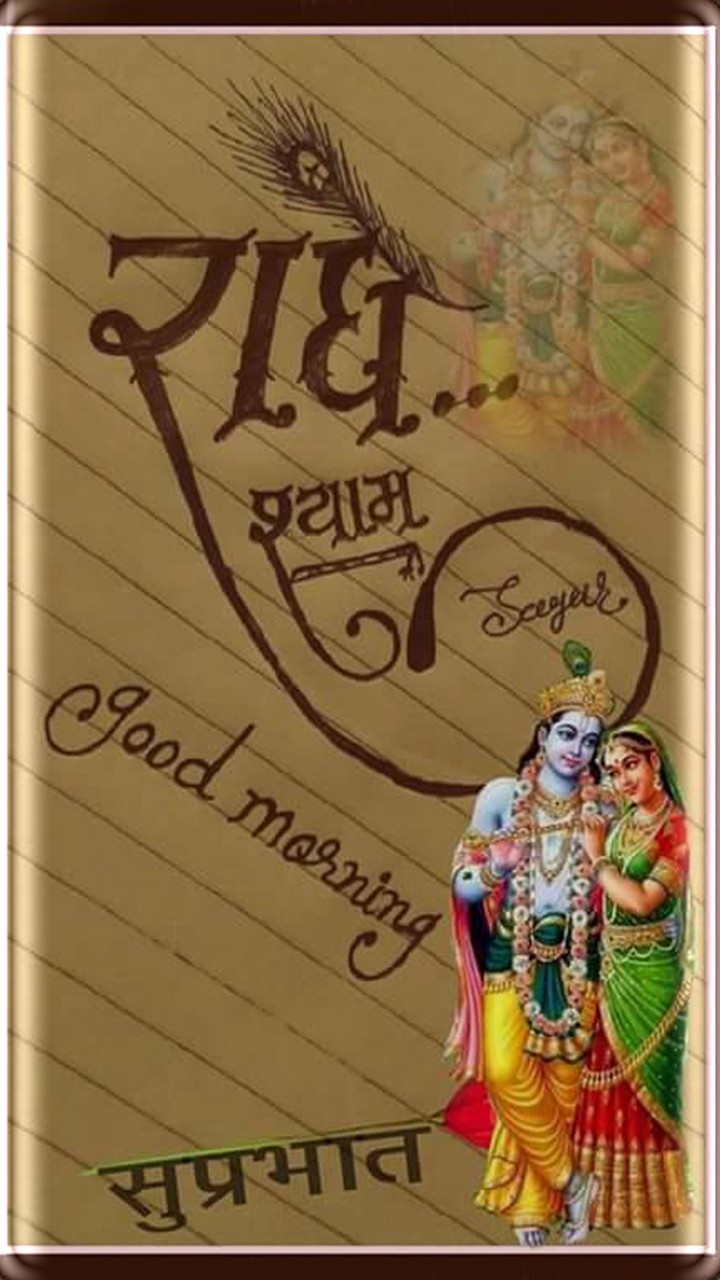 राधे...
श्याम
good morning
सुप्रभात